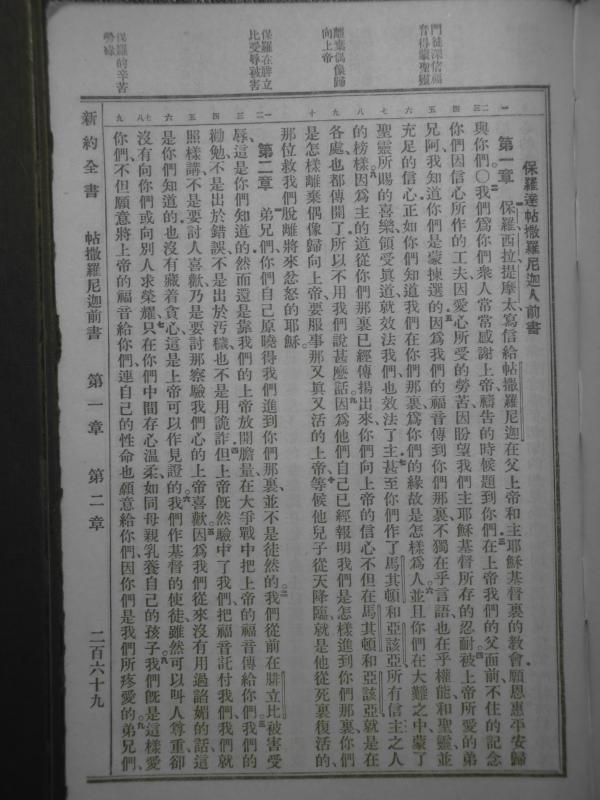 門徒深信福
音得蒙聖靈
離棄偶像歸
向上帝
保羅在腓立
比受辱被害
保羅的辛苦
勞碌
保羅達帖撒羅尼迦人前書
第一章 保羅西拉提摩太寫信給帖撒羅尼迦在父上帝和主耶穌基督裏的教會願恩惠平安歸
與你們〇我們爲你們衆人常常感謝上帝禱告的時候題到你們在上帝我們的父面前不住的記念
你們因信心所作的工夫因愛心所受的勞苦因盼望我們主耶穌基督所存的忍耐被上帝所愛的弟
兄阿我知道你們是蒙揀選的因爲我們的福音傳到你們那裏不獨在乎言語也在乎權能和聖靈並
充足的信心正如你們知道我們在你們那裏爲你們的緣故是怎樣爲人並且你們在大難之中蒙了
聖靈所賜的喜樂領受眞道就效法我們也效法了主甚至你們作了馬其頓和亞該亞所有信主之人
的榜樣因爲主的道從你們那裏已經傳揚出來你們向上帝的信心不但在馬其頓和亞該亞就是在
各處也都傳開了所以不用我們說甚麼話因爲他們自己已經報明我們是怎樣進到你們那裏你們
是怎樣離棄偶像歸向上帝要服事那又眞又活的上帝等候他兒子從天降臨就是他從死裏復活的
那位救我們脫離將來忿怒的耶穌
第二章 弟兄們你們自己原曉得我們進到你們那裏並不是徒然的我們從前在腓立比被害受
辱這是你們知道的然而還是靠我們的上帝放開膽量在大爭戰中把上帝的福音傳給你們我們的
勸勉不是出於錯誤不是出於汚穢也不是用詭詐但上帝旣然驗中了我們把福音託付我們我們就
照樣講不是要討人喜歡乃是要討那察驗我們心的上帝喜歡因爲我們從來沒有用過諂媚的話這
是你們知道的也沒有藏着貪心這是上帝可以作見證的我們作基督的使徒雖然可以叫人尊重卻
沒有向你們或向別人求榮耀只在你們中間存心溫柔如同母親乳養自己的孩子我們旣是這樣愛
你們不但願意將上帝的福音給你們連自己的性命也願意給你們因你們是我們所疼愛的弟兄們
新約全書 帖撒羅尼迦前書 第一章 第二章 二百六十九